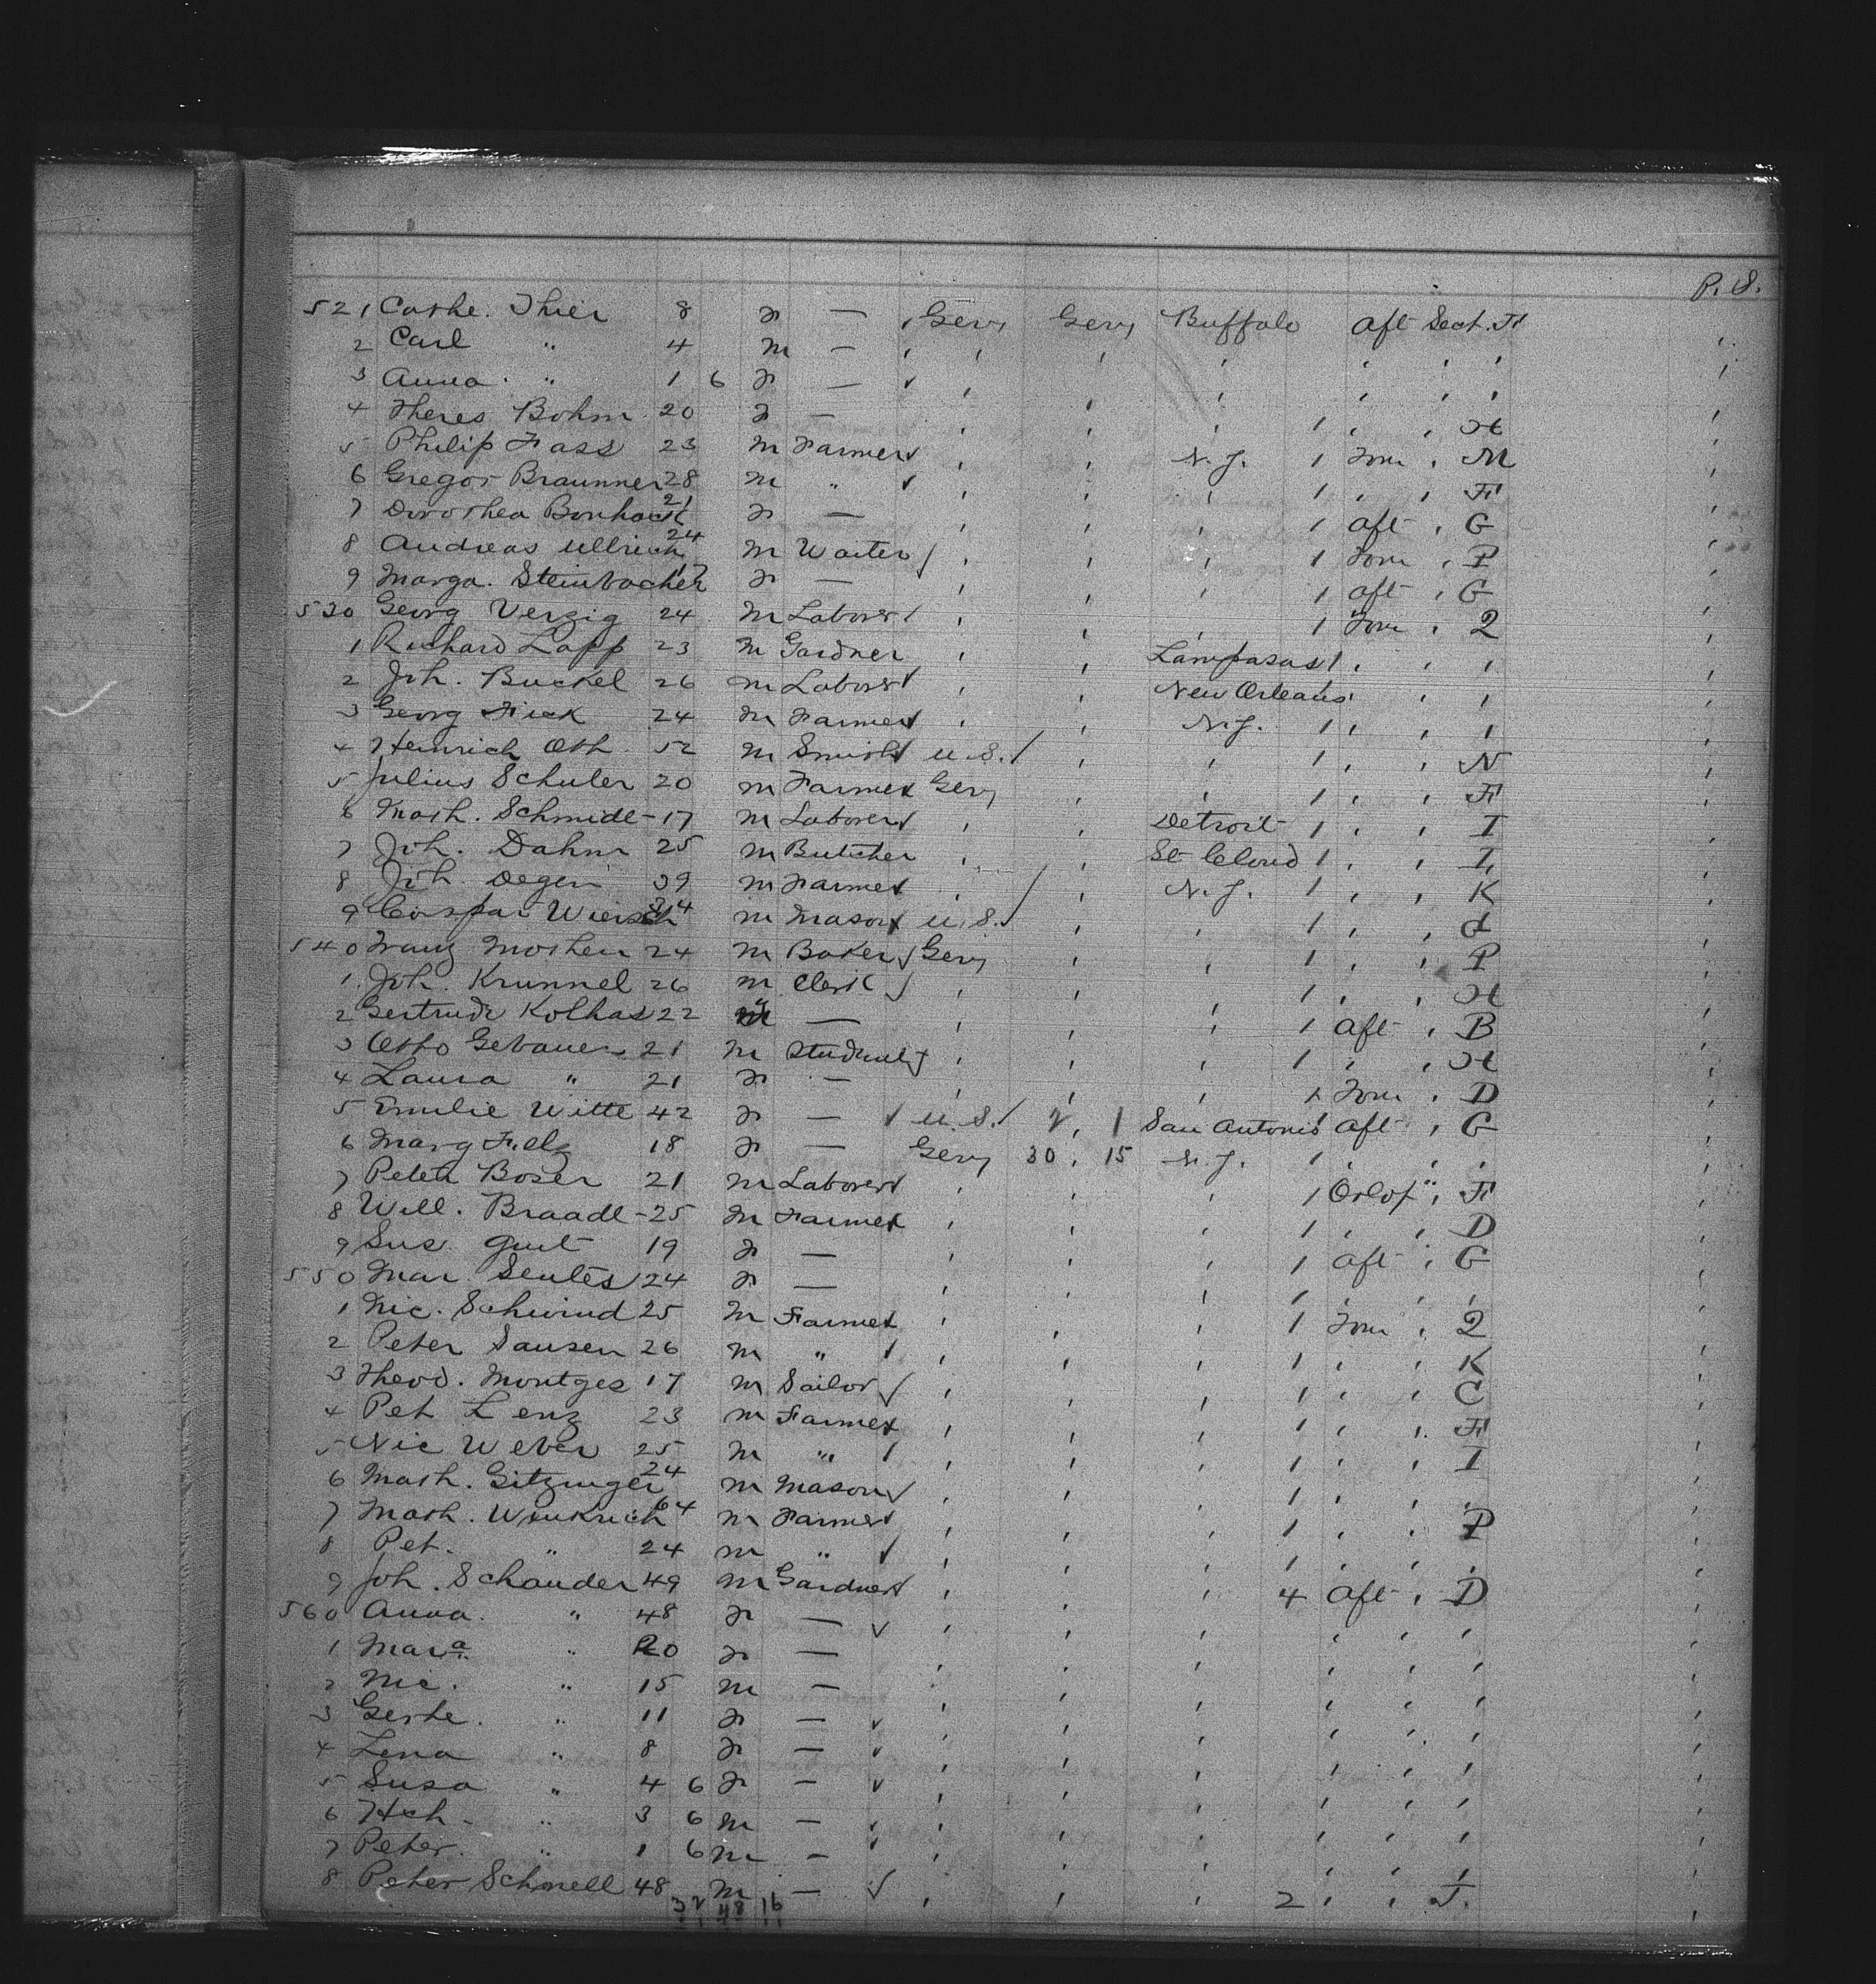 P. S.
521 Cathe. Thier 8 F — Gery Gery Buffalo Aft Sect. F
2 Carl " 4 M — ' ' ' ' ' '
3 Anna " 1 6 F — ' ' ' ' ' '
4 Theres Bohm 20 F — ' ' ' 1 ' ' H
5 Philip Fass 23 M Farmer ' ' N. J. 1 Forw ' M
6 Gregor Braunner 28 M " ' ' ' 1 ' ' F
7 Dorothea Bonhack 21 F — ' ' ' 1 Aft ' G
8 Andreas Ullrich 24 M Waiter ' ' ' 1 Forw ' P
9 Marga. Steinbacher 17 F — ' ' ' 1 Aft ' G
530 Georg Verzig 24 M Laborer ' ' ' 1 Forw ' Q
1 Richard Lapp 23 M Gardner ' ' Lampasas 1 ' ' '
2 Joh. Buckel 26 M Laborer ' ' New Orleans ' ' '
3 Georg Fick 24 M Farmer ' ' N. J. 1 ' ' '
4 Heinrich Oth 52 M Smith U. S. ' ' 1 ' ' N
5 Julius Schuler 20 M Farmer Gery ' ' 1 ' ' F
6 Math. Schmidt 17 M Laborer ' ' Detroit 1 ' ' I
7 Joh. Dahm 25 M Butcher ' ' St Cloud 1 ' ' I
8 Joh. Degen 39 M Farmer ' ' N. J. 1 ' ' K
9 Caspar Wiersch 34 M Mason U. S. ' ' 1 ' ' G
540 Franz Moshen 24 M Baker Gery ' ' 1 ' ' P
1 Joh. Krummel 26 M Clerk ' ' ' 1 ' ' H
2 Gertrude Kolhas 22 F — ' ' ' 1 Aft ' B
3 Otto Gebauer 21 M Student ' ' ' 1 ' ' H
4 Laura " 21 F — ' ' ' 1 Forw ' D
5 Emilie Witte 42 F — U. S. 2, 1 San Antonio 1 Aft ' G
6 Marg Filz 18 F — Gery 30, 15 N. J. 1 ' ' '
7 Peter Boser 21 M Laborer ' ' ' 1 Orlop " F
8 Will. Braadt 25 M Farmer ' ' ' 1 ' ' D
9 Sus. Gut 19 F — ' ' ' 1 Aft ' G
550 Mar. Seutes 24 F — ' ' ' 1 ' ' '
1 Nic. Schwind 25 M Farmer ' ' ' 1 Forw ' Q
2 Peter Sausen 26 M " ' ' ' 1 ' ' K
3 Theod. Montges 17 M Sailor ' ' ' 1 ' ' C
4 Pet Lenz 23 M Farmer ' ' ' 1 ' ' F
5 Nic Weber 25 M " ' ' ' 1 ' ' I
6 Math. Gitzinger 24 M Mason ' ' ' 1 ' ' '
7 Math. Winkrich 64 M Farmer ' ' ' 1 ' ' P
8 Pet. " 24 M " ' ' ' 1 ' ' '
9 Joh. Schauder 49 M Gardner ' ' ' 4 Aft ' D
560 Anna " 48 F — ' ' ' ' ' '
1 Mara " 20 F — ' ' ' ' ' '
2 Nic. " 15 M — ' ' ' ' ' '
3 Gerte. " 11 F — ' ' ' ' ' '
4 Lena " 8 F — ' ' ' ' ' '
5 Susa " 4 6 F — ' ' ' ' ' '
6 Hch. " 3 6 M — ' ' ' ' ' '
7 Peter. " 1 6 M — ' ' ' ' ' '
8 Peter Schnell 48 M — ' ' ' 2 ' ' J.
32 48 16